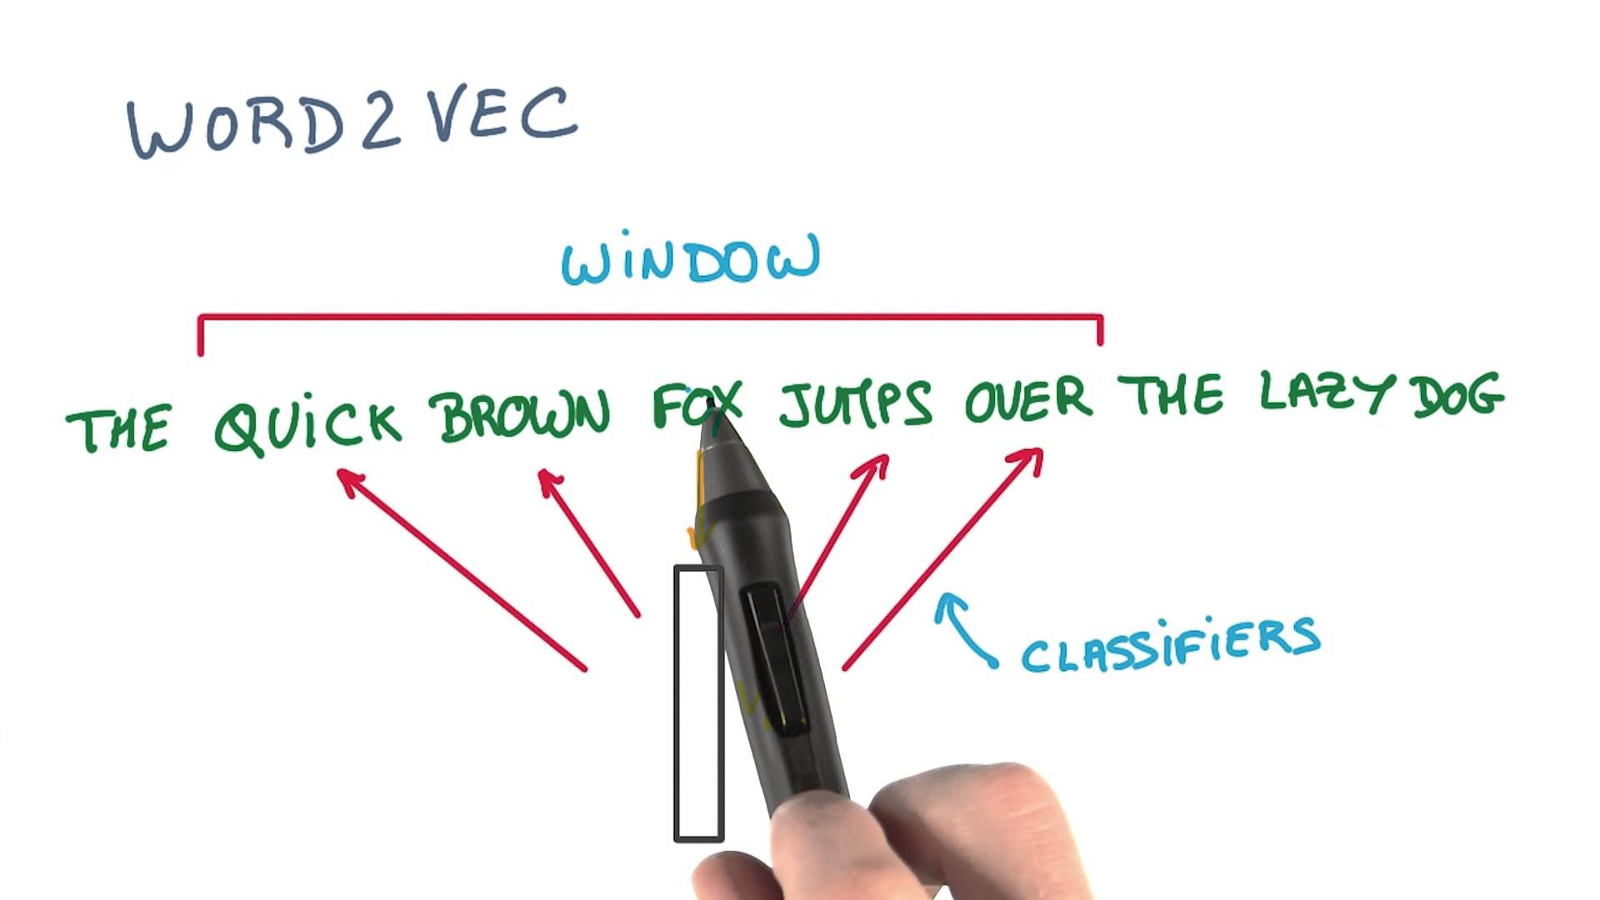 WORD2VEC
WiNDOW
THE QUiCK BROWN FOX JUMPS OVER THE LAZY DOG
CLASSiFiERS